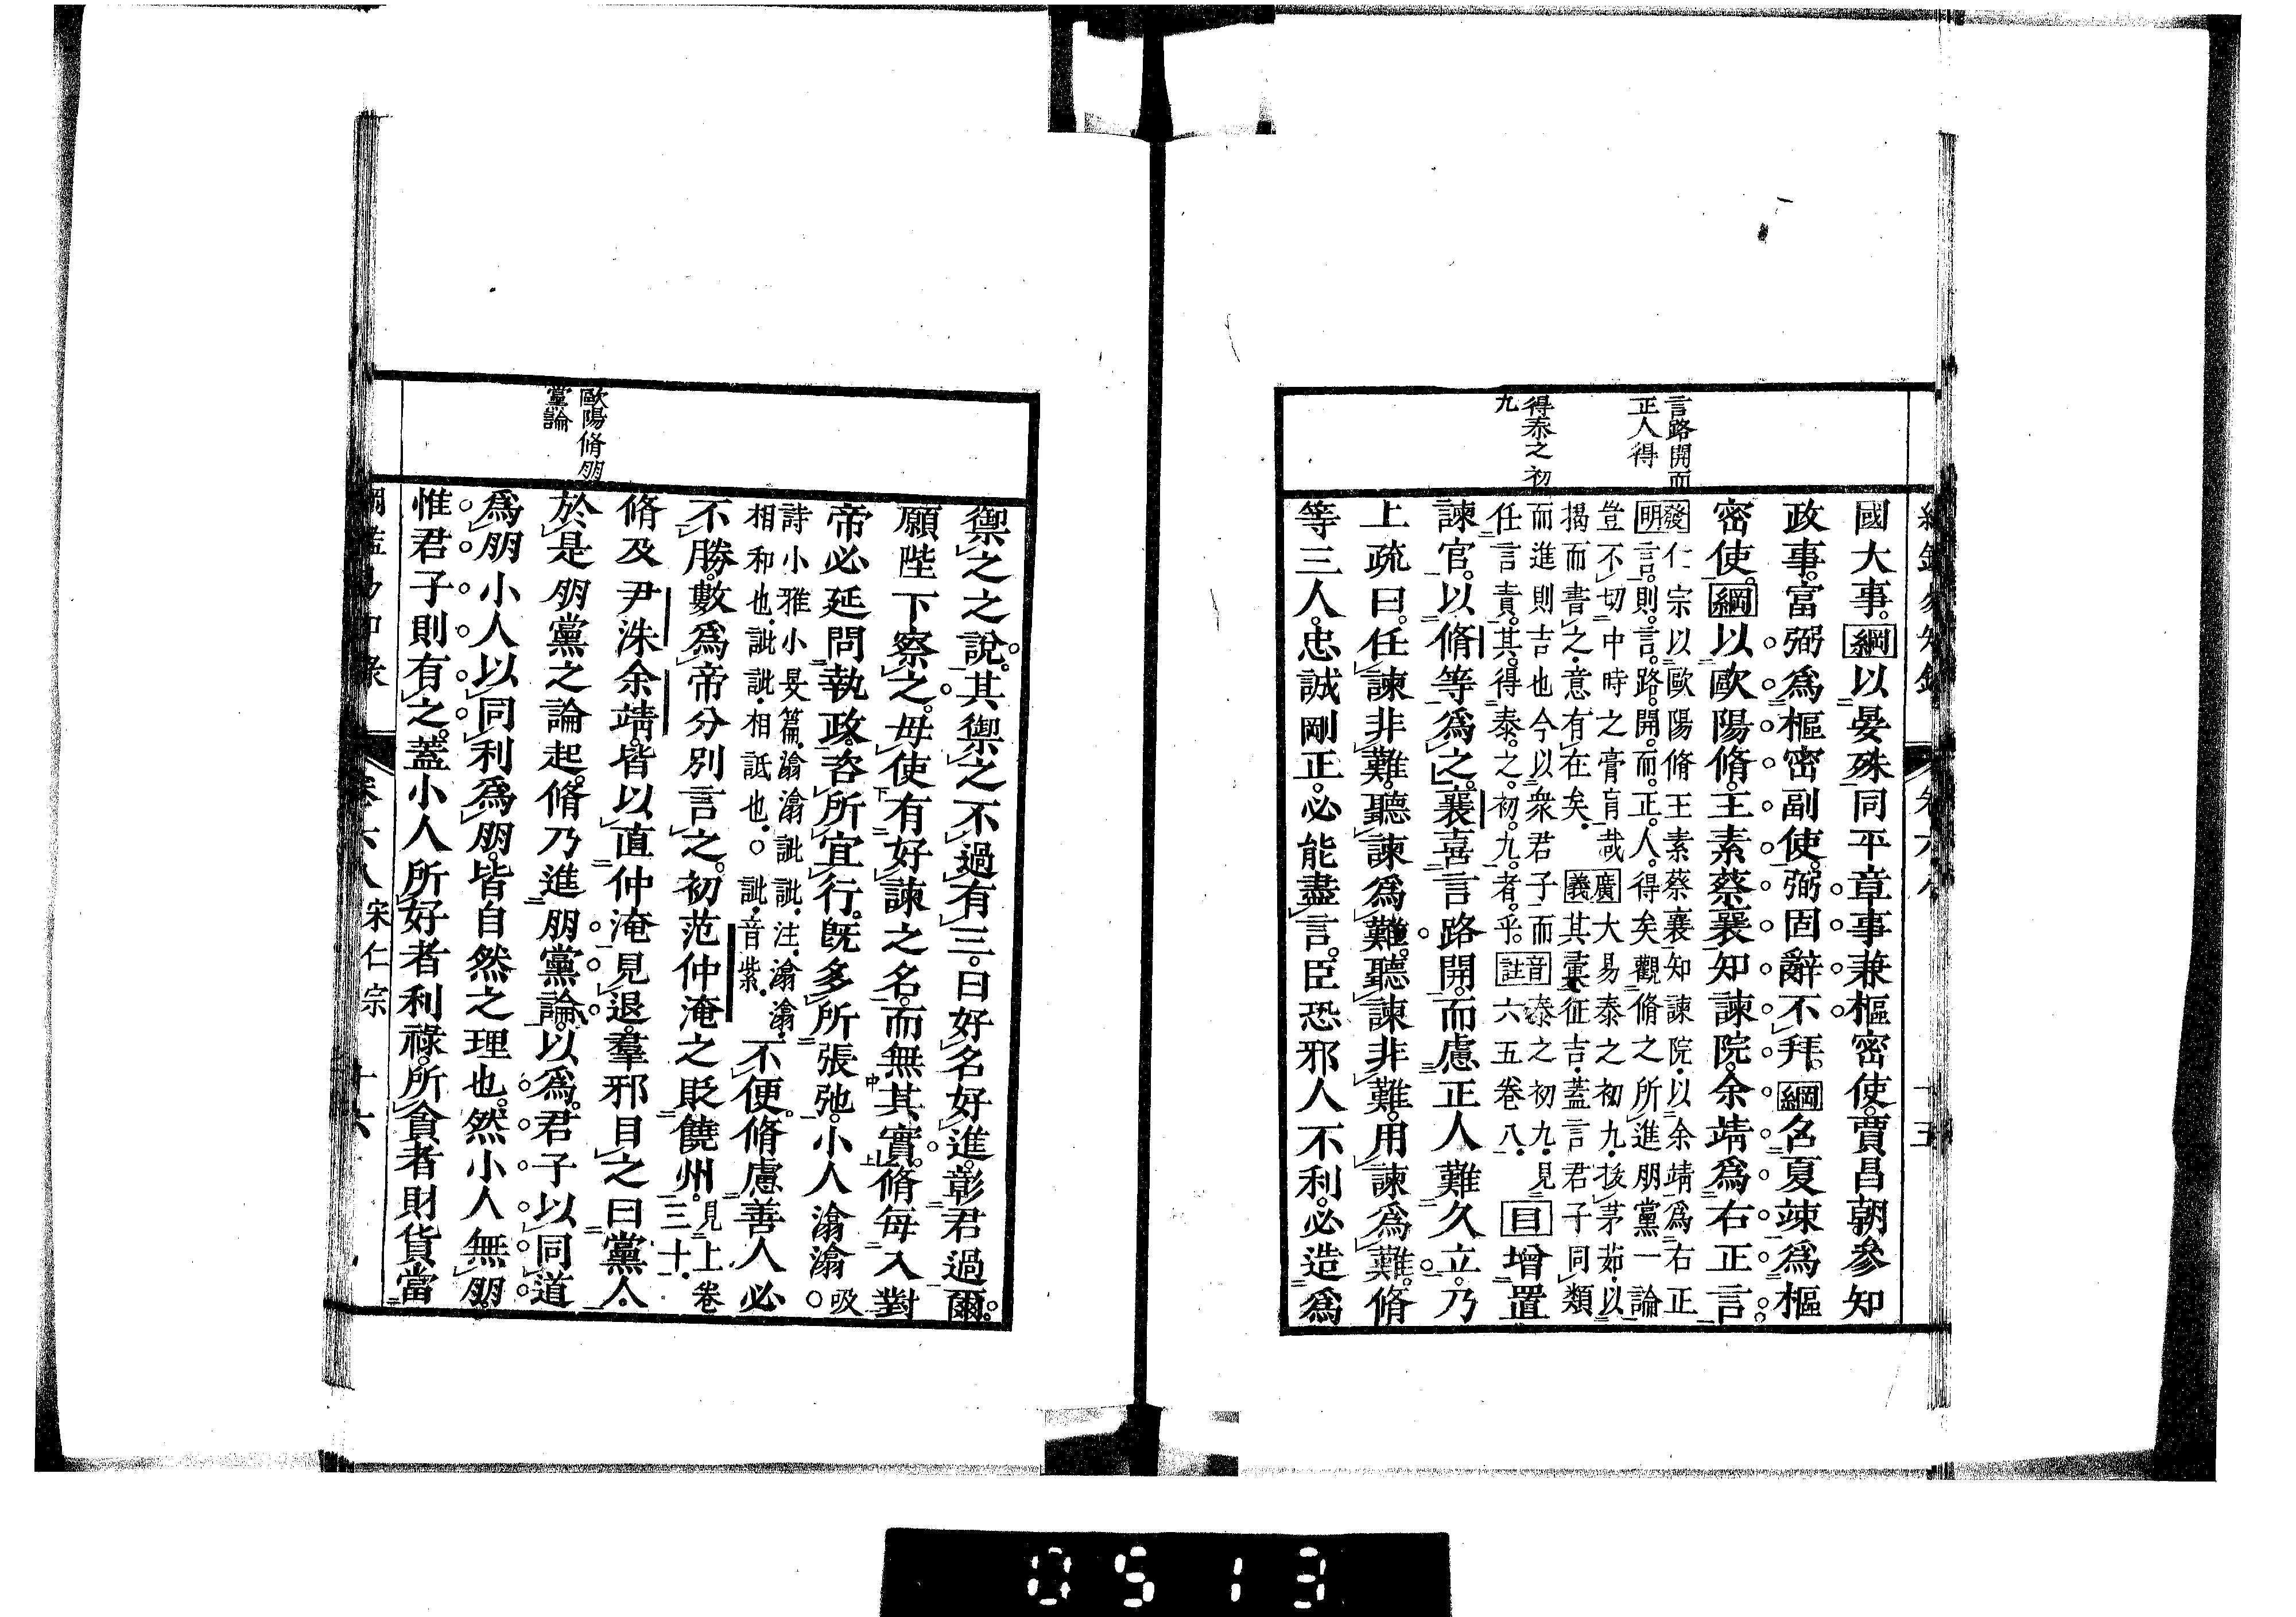 言路開而
正人得
得泰之初
九
國大事。綱以晏殊同平章事兼樞密使。賈昌朝參知
政事。富弼爲樞密副使。弼固辭不拜。綱名夏竦爲樞
密使。綱以歐陽脩。王素蔡襄知諫院。余靖爲右正言。
發明
仁宗以歐陽脩王素蔡襄知諫院以余靖爲右正
言。則。言。路。開。而。正。人。得矣觀脩之所進朋黨一論
豈不切中時之膏肓哉廣義大易泰之初九拔茅茹以
揭而書之意有在矣其彙征吉蓋言君子同類
而進則吉也今以衆君子而音泰之初九見
任言責。其。得。泰。之。初。九。者。乎。註六五卷八目增置
諫官。以脩等爲之。襄喜言路開。而慮正人難久立。乃
上疏曰。任諫非難。聽諫爲難。聽諫非難。用諫爲難。脩
等三人。忠誠剛正。必能盡言。臣恐邪人不利。必造爲
歐陽脩朋
黨論
禦之之說。其禦之不過有三。曰好名好進。彰君過爾。
願陛下察之。毋使有好諫之名。而無其實。脩每入對
帝必延問執政。咨所宜行。旣多所張弛。小人滃滃○吸
詩小雅小旻篇滃滃訿訿注滃滃
相和也訿訿相詆也○訿音紫不便。脩慮善人必
不勝。數爲帝分別言之。初范仲淹之貶饒州。見上卷三十
脩及尹洙余靖。皆以直仲淹見退。羣邪目之曰黨人
於是朋黨之論起。脩乃進朋黨論。以爲。君子以同道
爲朋小人以同利爲朋。皆自然之理也。然小人無朋。
惟君子則有之。蓋小人所好者利祿。所貪者財貨當
卷六八 宋仁宗 十六